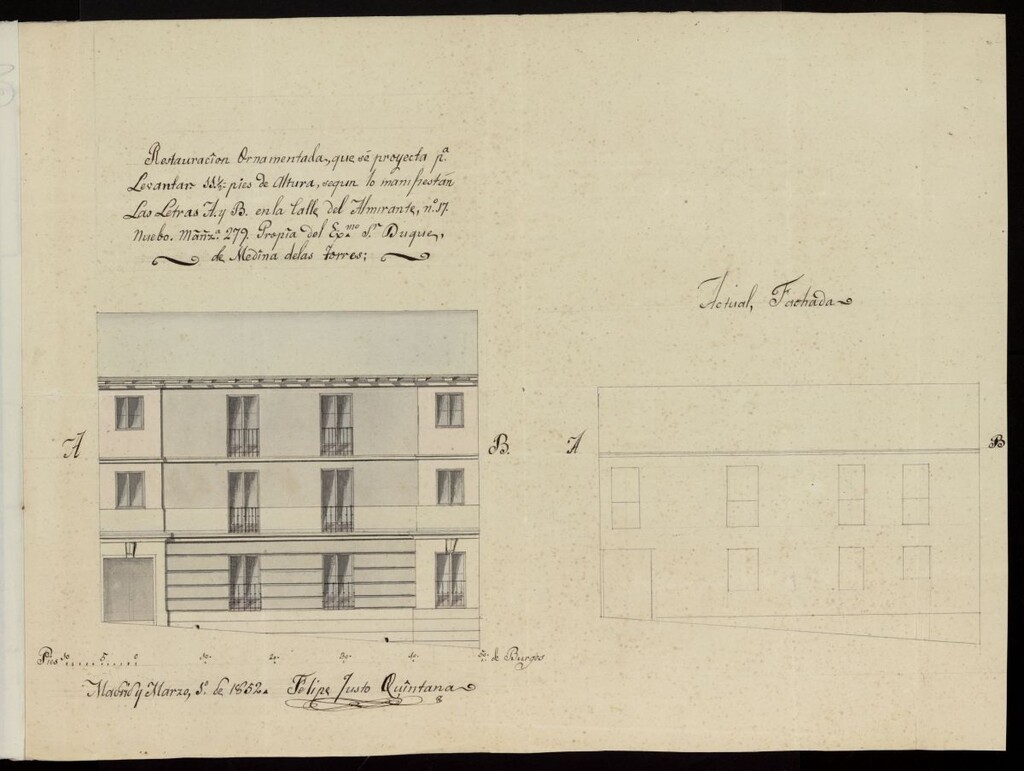 Restauracion Ornamentada, que se proyecta p.ª
Levantar 11½ pies de Altura, segun lo manifiestan
Las Letras A. y B. en la Calle del Almirante, n.º 17.
Nuebo. Manz.ª 279. Propia del Ex.mo S.r Duque,
de Medina delas Torres;
Actual, Fachada
A
B.
A
B
Pies 10 5 0 10 20 30 40 50 de Burgos
Madrid y Marzo, 1.º de 1852. Felipe Justo Quintana